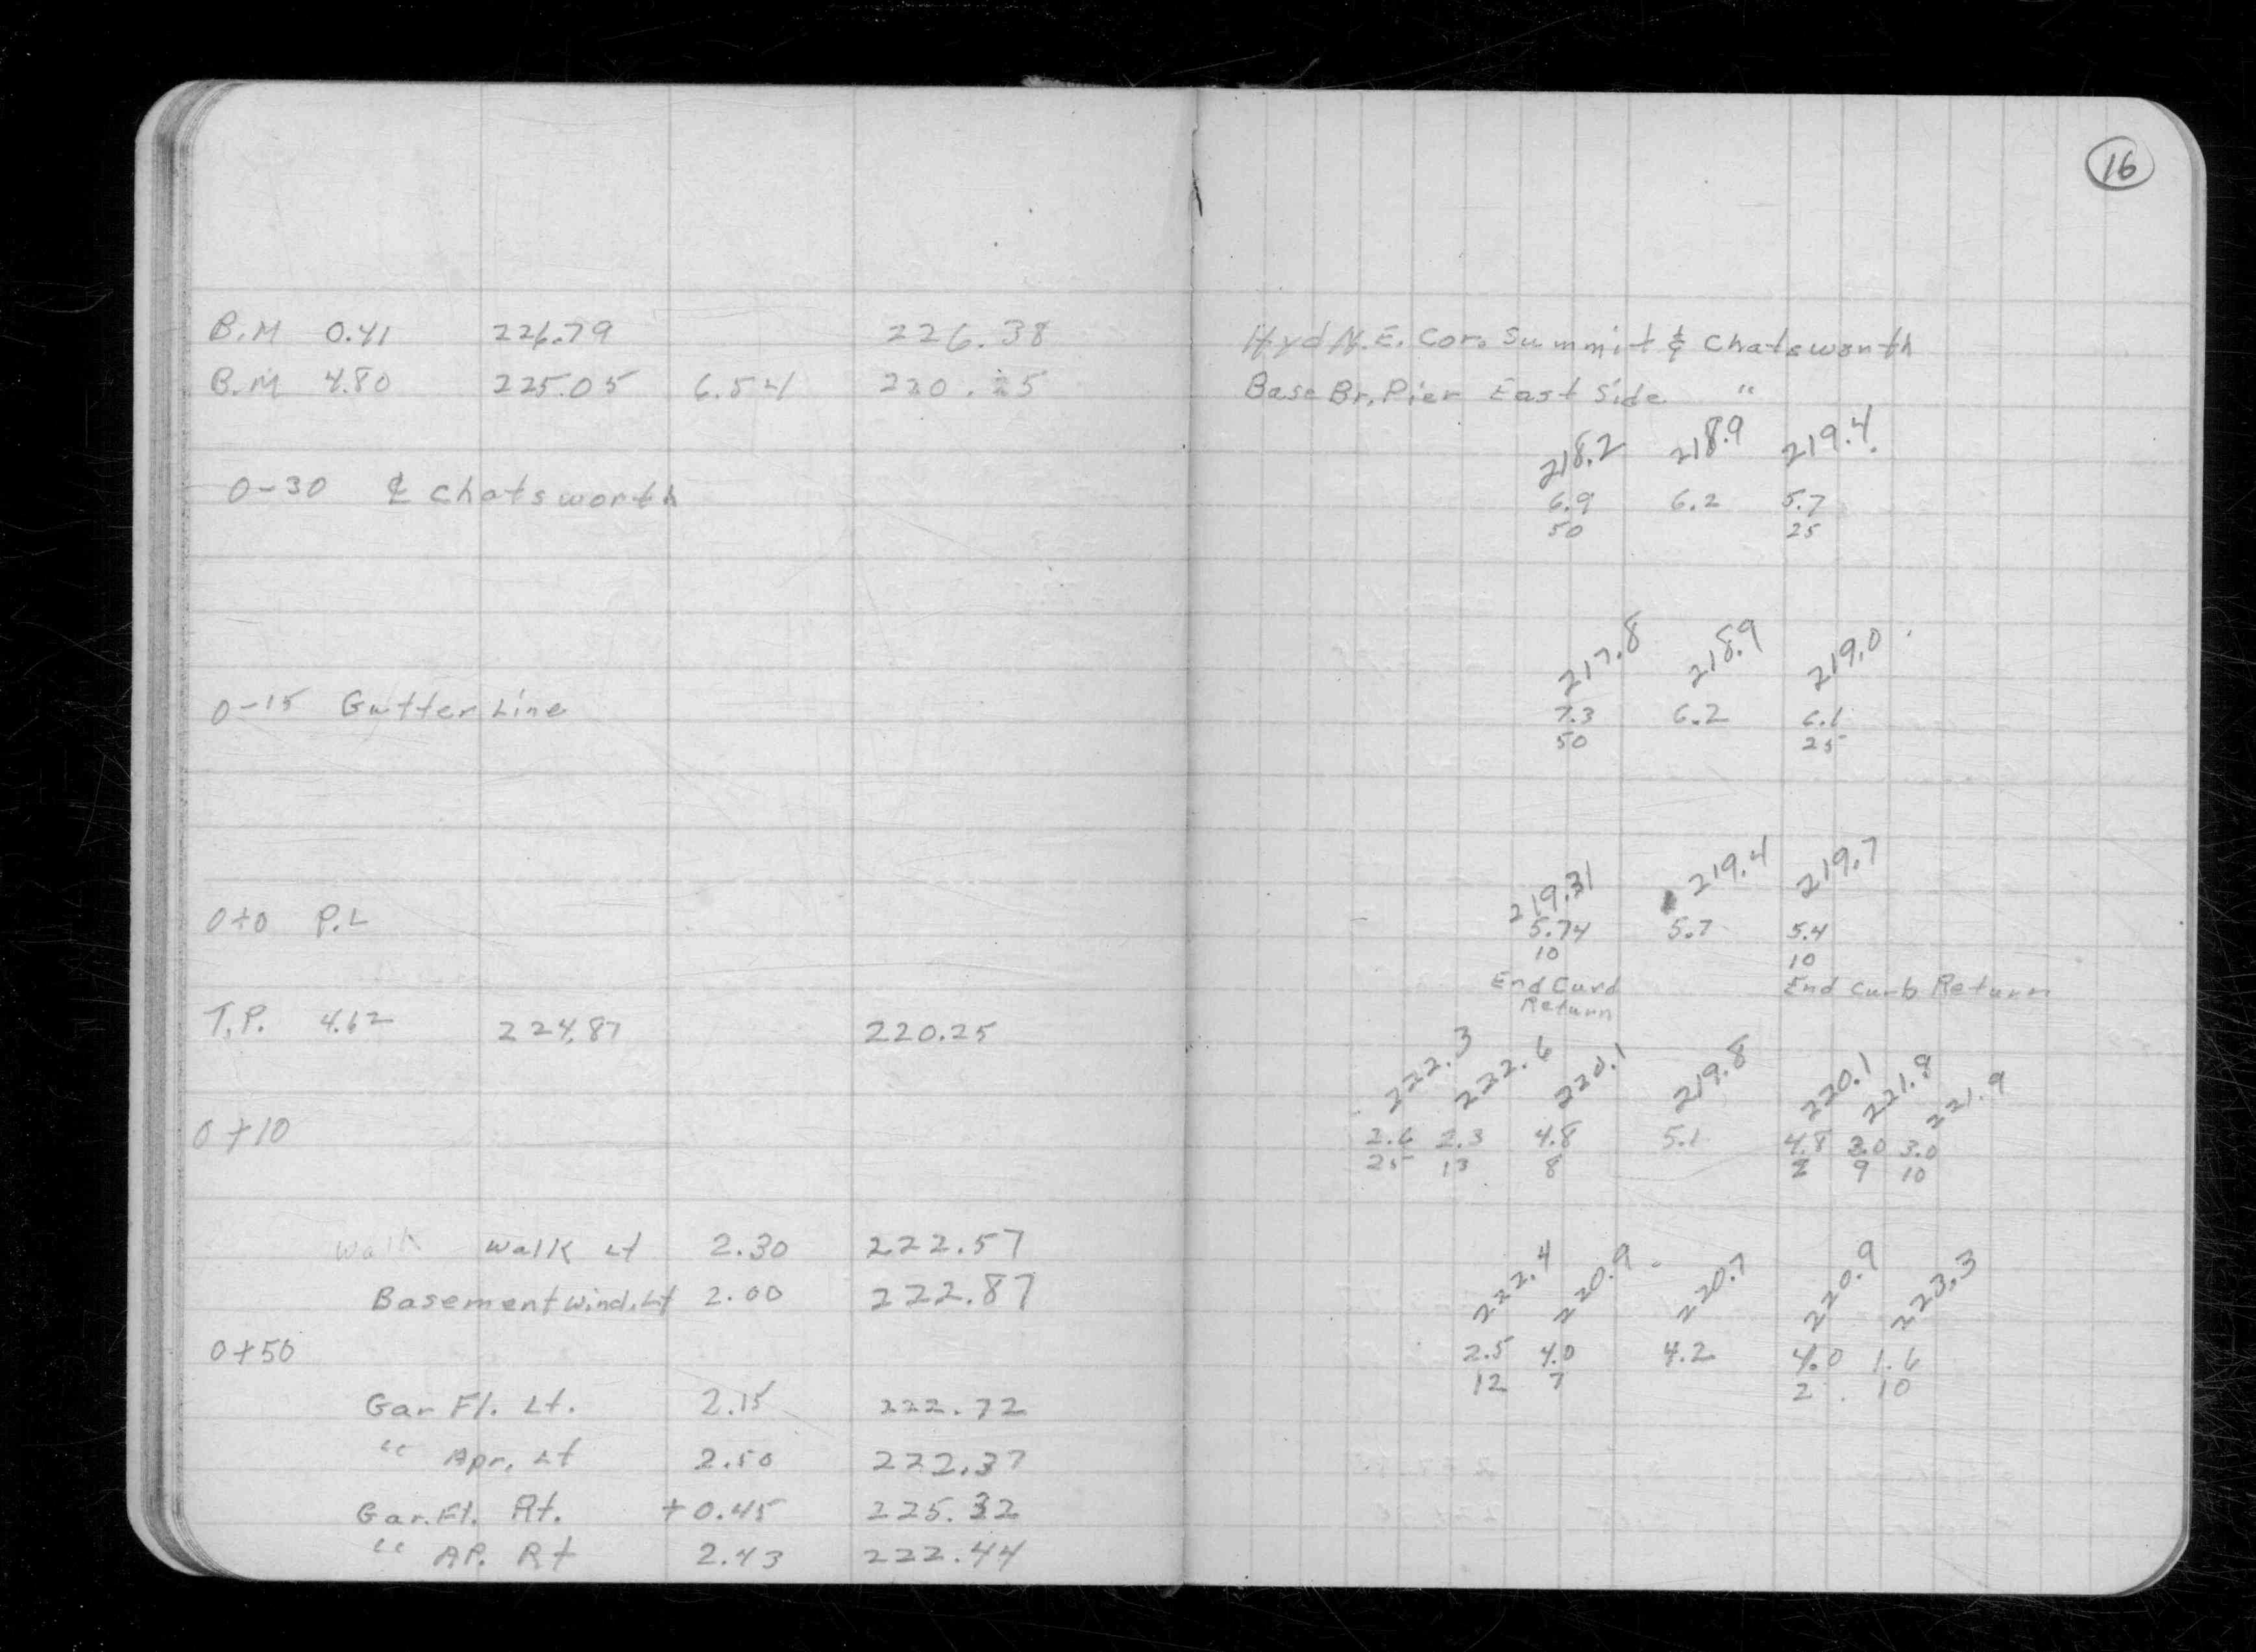 16
B.M 0.41 226.79 226.38 Hyd N.E. Cor. Summit & Chatsworth
B.M 4.80 225.05 6.54 220.25 Base Br. Pier East Side "
218.2 218.9 219.4
0-30 ℄ Chatsworth 6.9 6.2 5.7
50 25
217.8 218.9 219.0
0-15 Gutter Line 7.3 6.2 6.1
50 25
219.31 219.4 219.7
0+0 P.L 5.74 5.7 5.4
10 10
End Curd End Curb Return
Return
T.P. 4.62 224.87 220.25
222.3 222.6 220.1 219.8 220.1 221.9 221.9
0+10 2.6 2.3 4.8 5.1 4.8 3.0 3.0
25 13 8 2 9 10
Walk Walk Lt 2.30 222.57
Basement Wind. Lt 2.00 222.87
222.4 220.9 220.7 220.9 223.3
0+50 2.5 4.0 4.2 4.0 1.6
12 7 2 10
Gar Fl. Lt. 2.15 222.72
" Apr. Lt 2.50 222.37
Gar. Fl. Rt. +0.45 225.32
" AP. Rt 2.43 222.44